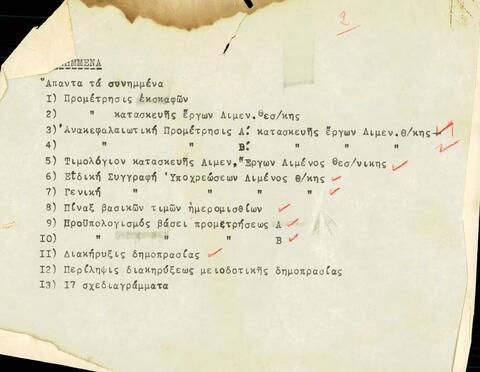 2
ΗΜΜΕΝΑ
Ἅπαντα τά συνημμένα
I) Προμέτρησις ἐκσκαφῶν
2) " κατασκευῆς ἔργων Λιμεν. Θεσ/κης
3) Ἀνακεφαλαιωτική Προμέτρησις Α΄ κατασκευῆς ἔργων Λιμεν. Θ/κης
4) " " Β΄ " " " "
5) Τιμολόγιον κατασκευῆς Λιμεν. Ἔργων Λιμένος Θεσ/νίκης
6) Εἰδική Συγγραφή Ὑποχρεώσεων Λιμένος Θ/κης
7) Γενική " " " "
8) Πίναξ βασικῶν τιμῶν ἡμερομισθίων
9) Προϋπολογισμός βάσει προμετρήσεως Α
IO) " " " " Β
II) Διακήρυξις δημοπρασίας
I2) Περίληψις διακηρύξεως μειοδοτικῆς δημοπρασίας
I3) I7 σχεδιαγράμματα